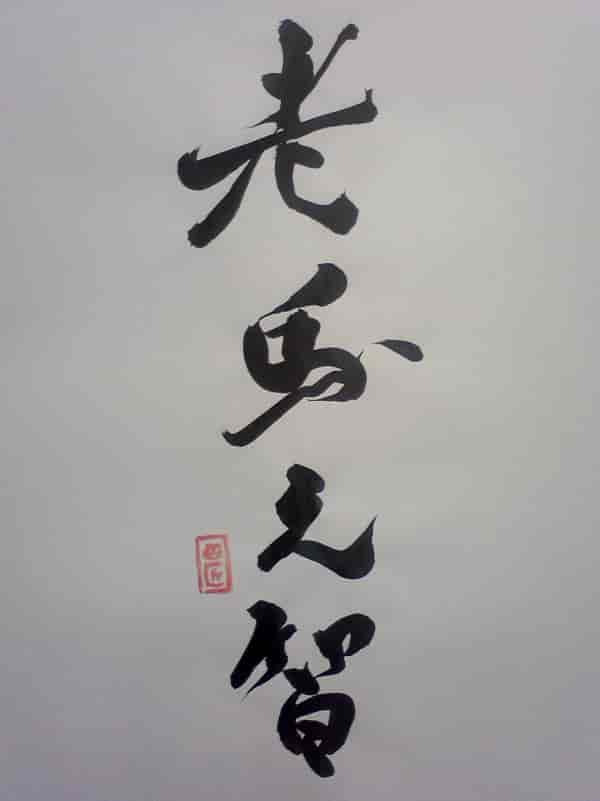 老馬之智